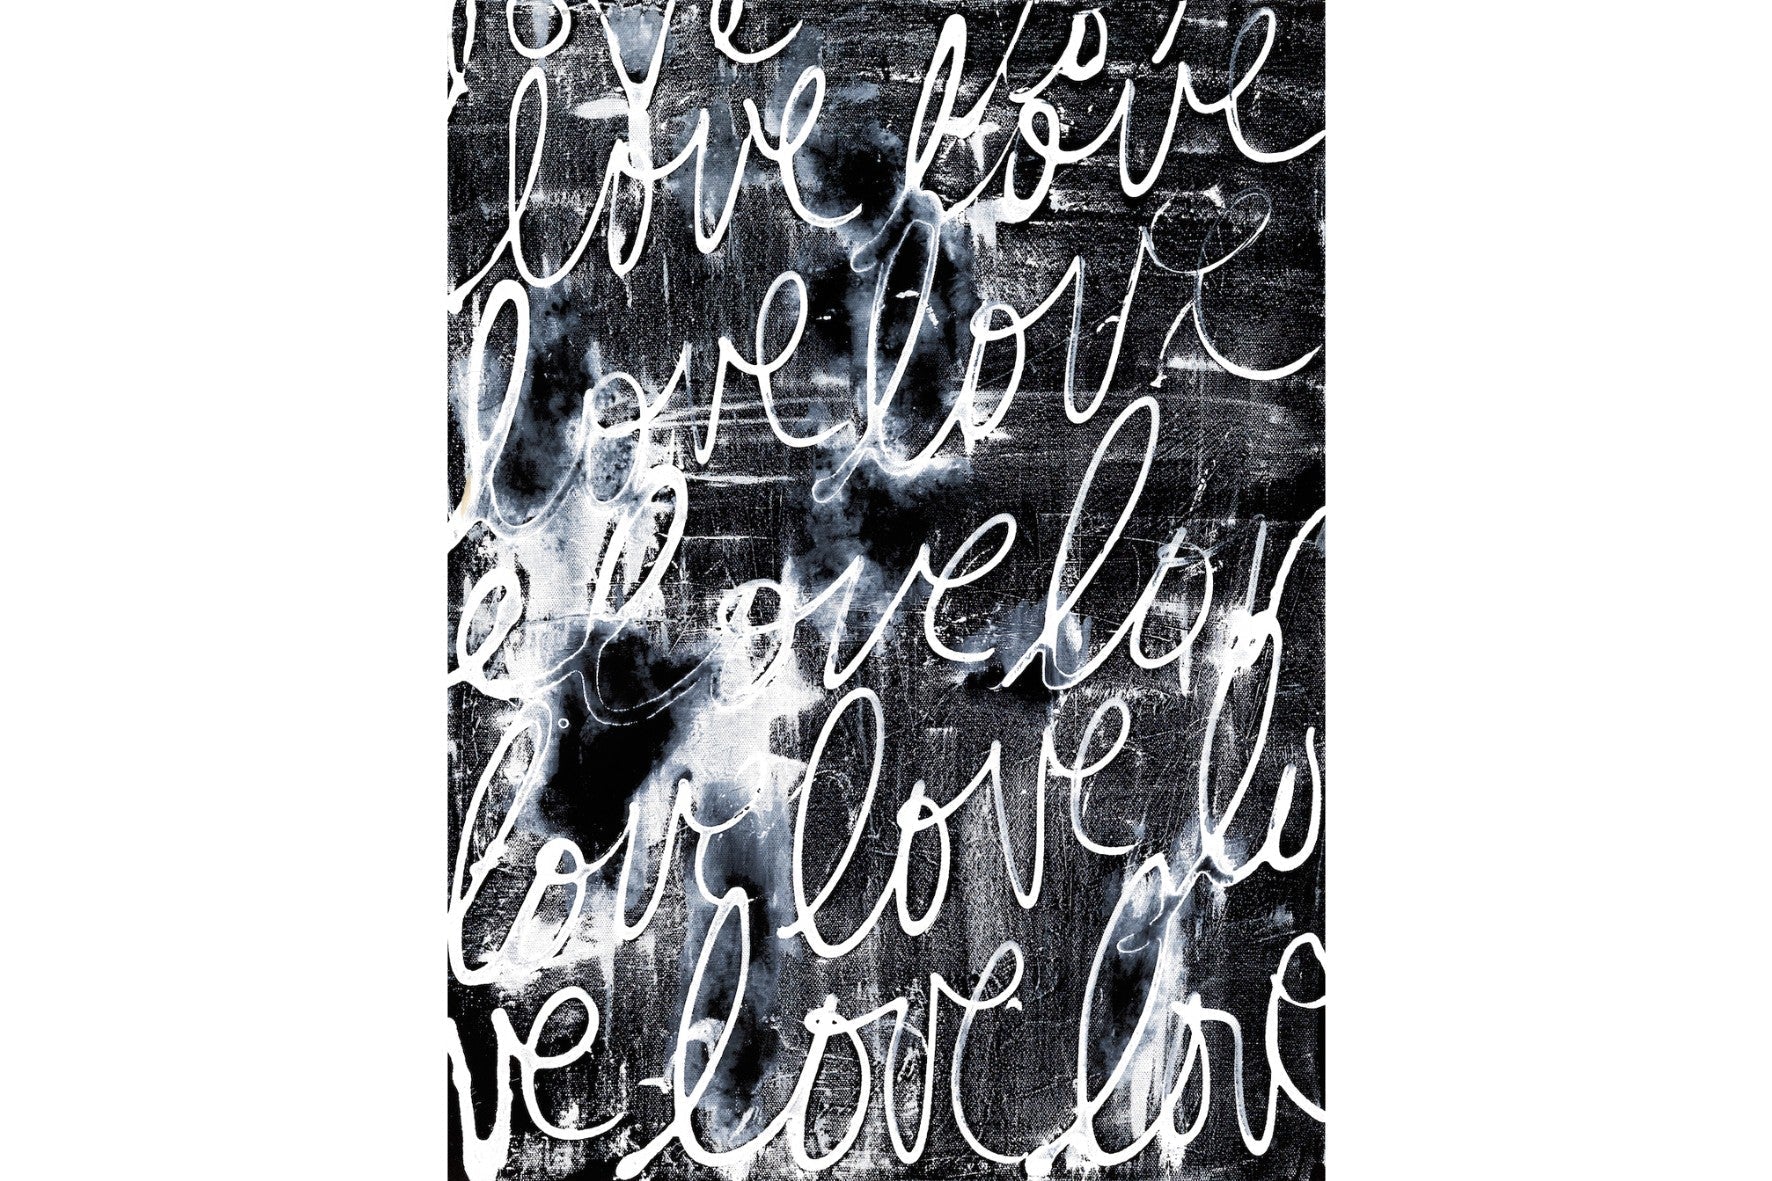 love lov
love love
love love
e love lov
love love lo
ve love love